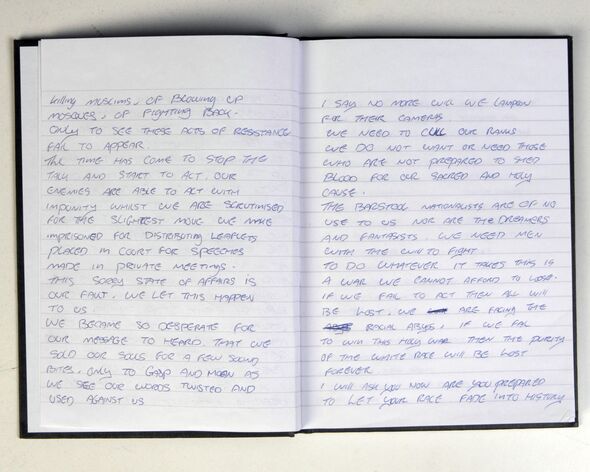 killing MUSLIMS, OF BLOWING UP
MOSQUES, OF FIGHTING BACK.
ONLY TO SEE THESE ACTS OF RESISTANCE
FAIL TO APPEAR.
THE TIME HAS COME TO STOP THE
TALK AND START TO ACT, OUR
ENEMIES ARE ABLE TO ACT WITH
IMPUNITY WHILST WE ARE SCRUTINISED
FOR THE SLIGHTEST MOVE WE MAKE
IMPRISONED FOR DISTRIBUTING LEAFLETS
PLACED IN COURT FOR SPEECHES
MADE IN PRIVATE MEETINGS.
THIS SORRY STATE OF AFFAIRS IS
OUR FAULT. WE LET THIS HAPPEN
TO US.
WE BECAME SO DESPERATE FOR
OUR MESSAGE TO HEARD. THAT WE
SOLD OUR SOULS FOR A FEW SOUND
BITES, ONLY TO GASP AND MOAN AS
WE SEE OUR WORDS TWISTED AND
USED AGAINST US
I SAY NO MORE WILL WE
FOR THEIR CAMERAS.
WE NEED TO CULL OUR RANKS
WE DO NOT WANT OR NEED THOSE
WHO ARE NOT PREPARED TO SHED
BLOOD FOR OUR SACRED AND HOLY
CAUSE.
THE BARSTOOL NATIONALISTS ARE OF NO
USE TO US NOR ARE THE DREAMERS
AND FANTASISTS WE NEED MEN
WITH THE WILL TO FIGHT.
TO DO WHATEVER IT TAKES THIS IS
A WAR WE CANNOT AFFORD TO LOSE.
IF WE FAIL TO ACT THEN ALL WILL
BE LOST. WE ARE FACING THE
RACIAL ABYSS, IF WE FAIL
TO WIN THIS HOLY WAR THEN THE PURITY
OF THE WHITE RACE WILL BE LOST
FOREVER
I WILL ASK YOU NOW ARE YOU PREPARED
TO LET YOUR RACE FADE INTO HISTORY